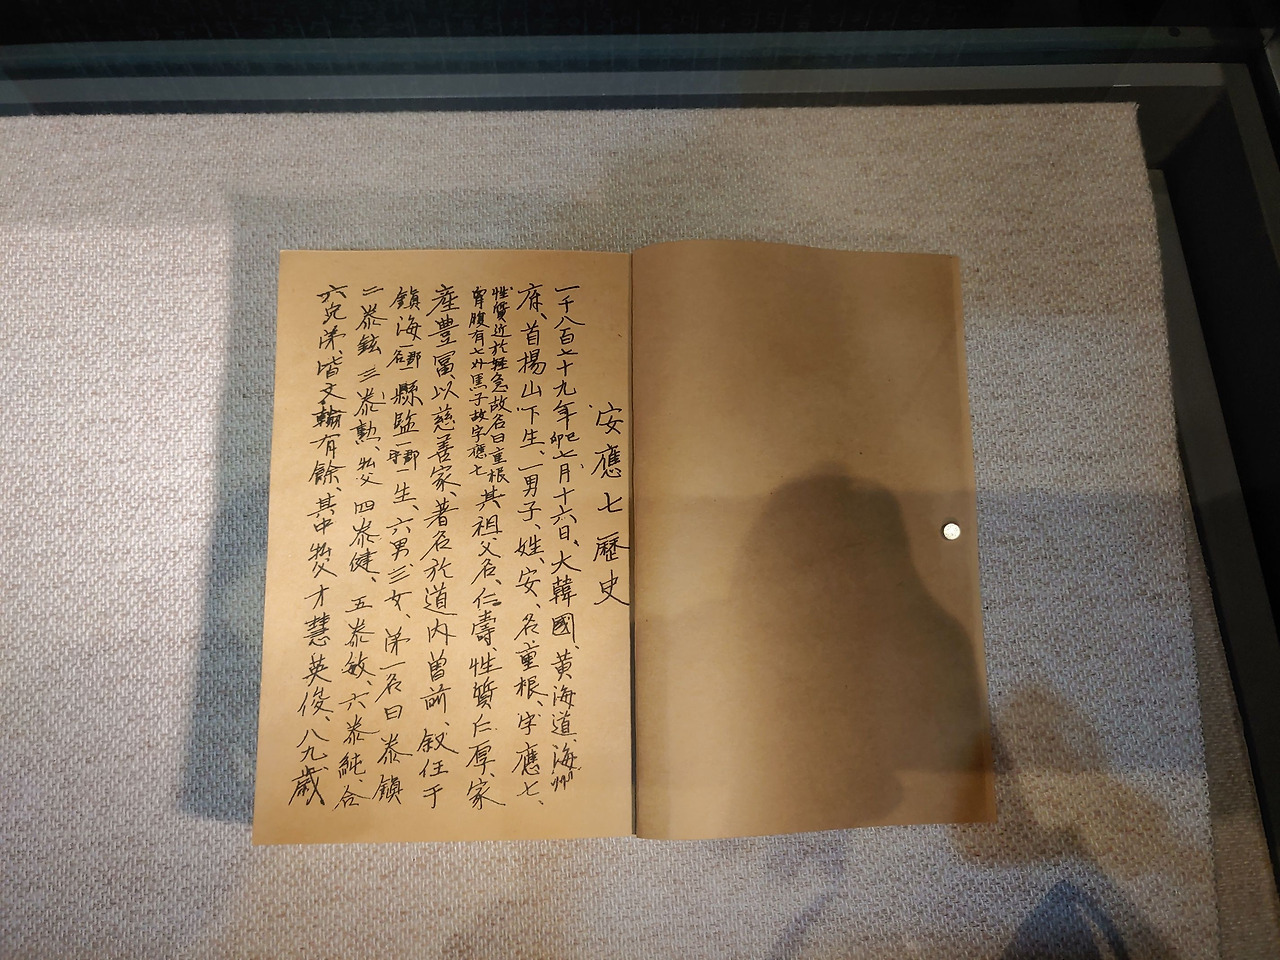 安應七歷史
一千八百七十九年己卯七月十六日、大韓國、黃海道、海州
府、首楊山下生、一男子、姓、安、名、重根、字、應七、
性質近於輕急故名曰重根
胷腹有七介黑子故字應七
其祖父名、仁壽、性質仁厚、家
產豊富、以慈善家、著名於道內曾前、叙任于
鎮海一名郡縣監一郡守一生、六男、三女、第一名曰泰鎮
二泰鉉三泰勲、父四泰健、五泰敏、六泰純、合
六兄弟、皆文翰有餘、其中父才慧英俊、八九歲